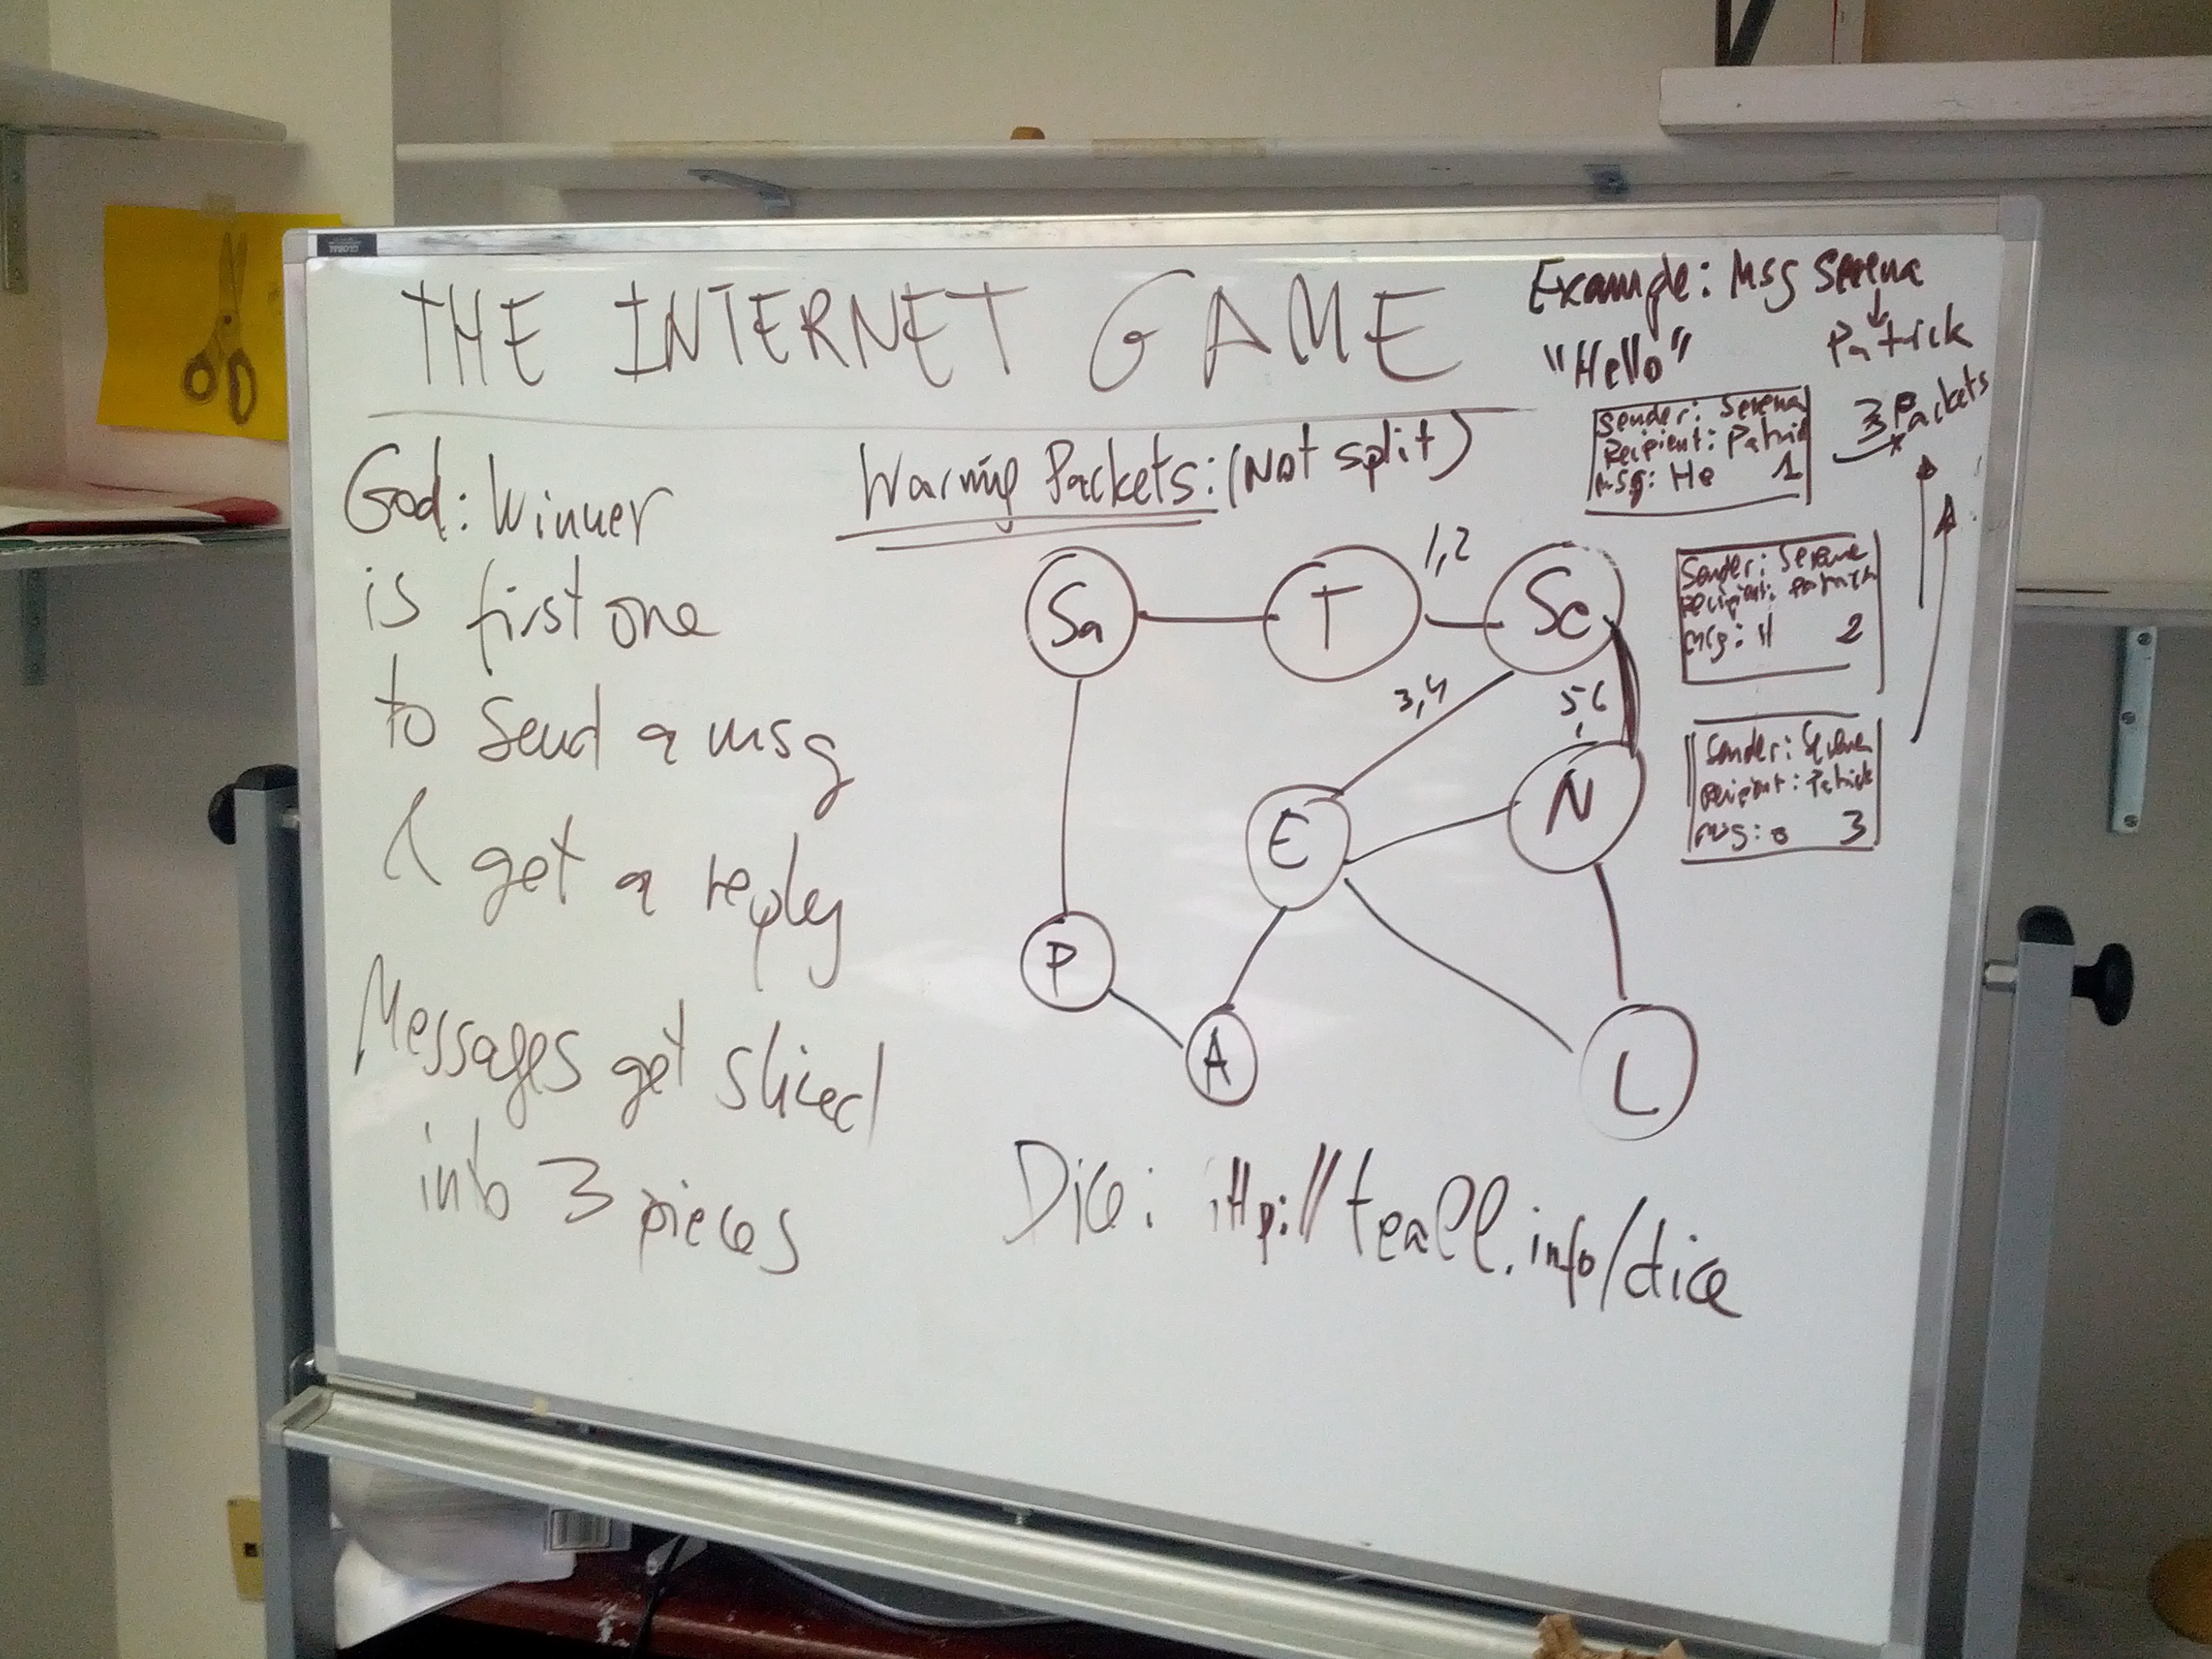 THE INTERNET GAME
God: Winner
is first one
to send a msg
& get a reply
Messages get sliced
into 3 pieces
Warning Packets: (Not split)
Sa
T
1,2
Se
3,4
5,6
E
N
P
A
L
Dice: http://teall.info/dice
Example: Msg Serena
↓
Patrick
"Hello"
3 Packets
Sender: Serena
Recipient: Patric
msg: He 1
Sender: Serena
Recipient: Patrick
msg: ll 2
Sender: Serena
Recipient: Patrick
msg: o 3
GLOBAL